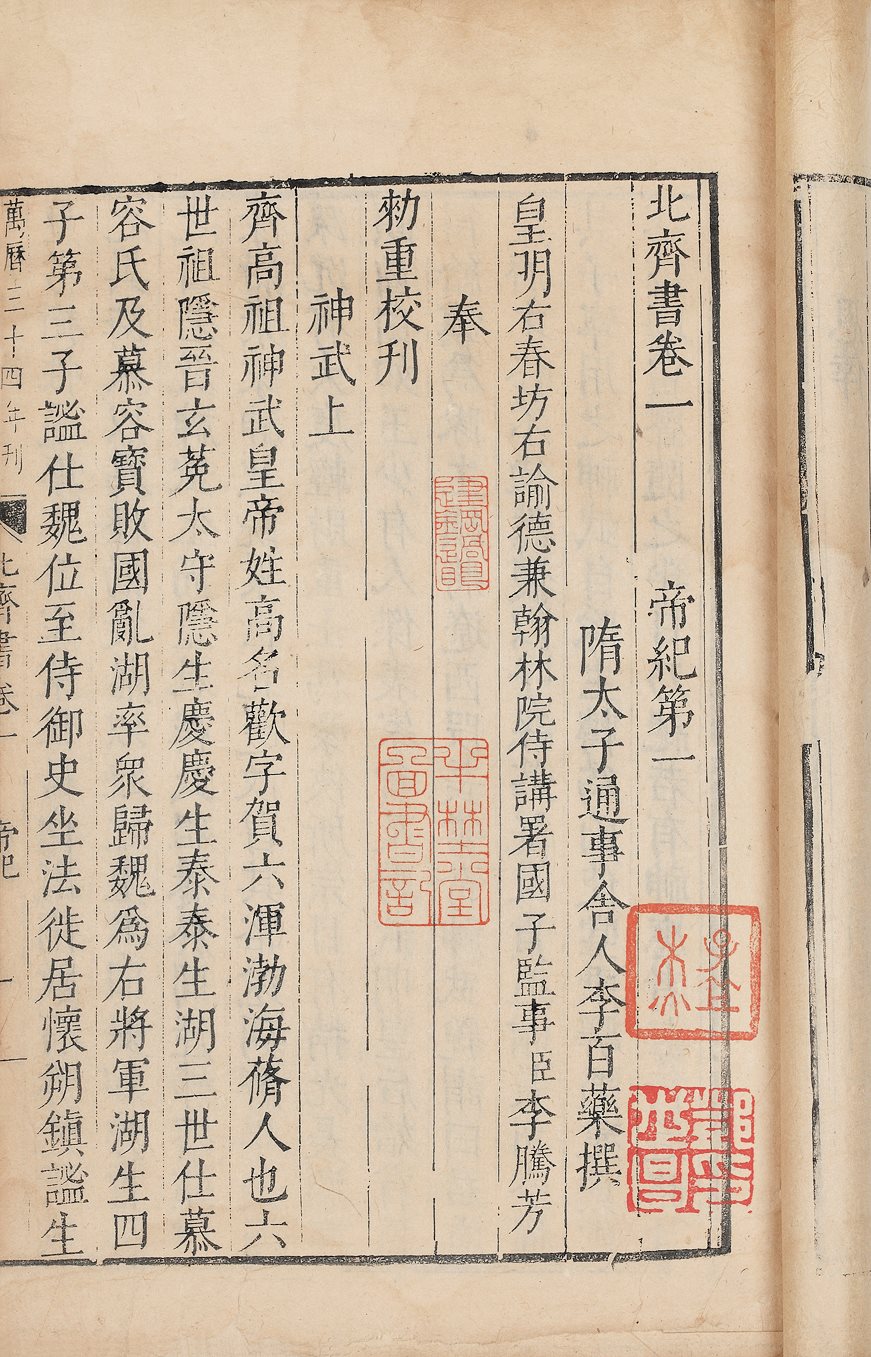 北齊書卷一 帝紀第一
隋太子通事舍人李百藥撰
皇明右春坊右諭德兼翰林院侍講署國子監事臣李騰芳
奉
勑重校刊
神武上
齊高祖神武皇帝姓高名歡字賀六渾渤海蓨人也六
世祖隱晉玄菟太守隱生慶慶生泰泰生湖三世仕慕
容氏及慕容寶敗國亂湖率衆歸魏爲右將軍湖生四
子第三子謐仕魏位至侍御史坐法徙居懷朔鎮謐生
萬曆三十四年刊 北齊書卷一 帝紀 一
半埜堂
圖書記